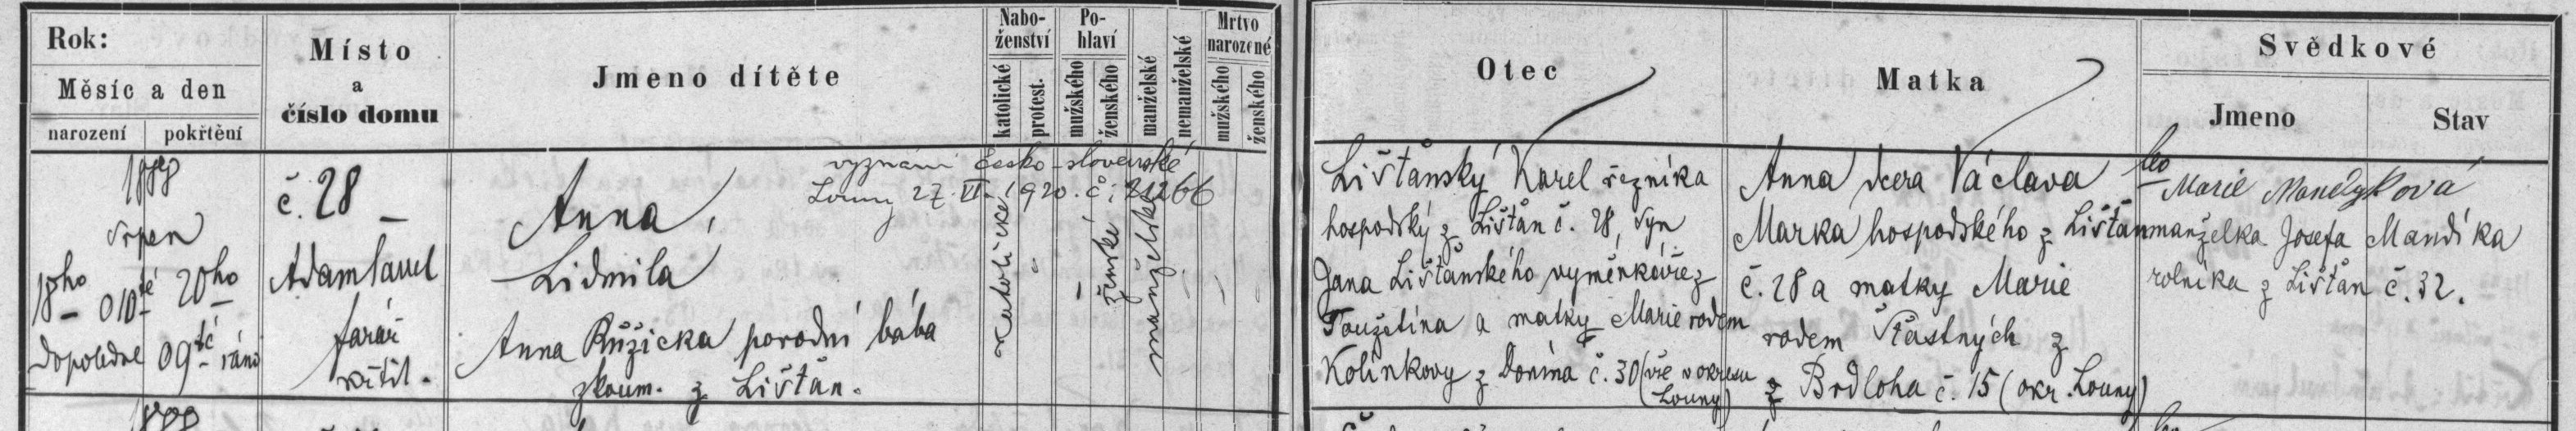 Rok:
Měsíc a den
narození pokřtění
Místo
a
číslo domu
Jmeno dítěte
Nabo-
ženství
katolické
protest.
Po-
hlaví
mužského
ženského
manželské
nemanželské
Mrtvo
narozené
mužského
ženského
Otec
Matka
Svědkové
Jmeno
Stav
Srpen
18ho
o 10té
dopoledne
20ho
o 9té ráno
č. 28
Adam
farář
křtil.
vyznání česko-slovenské
Louny 27. VI. 1920. č: 21266
Anna,
Lidmila
Anna Růžicka porodní bába
zkoum. z Lištan.
katolické
ženské
manželské
Lišťanský Karel řezníka
hospodský z Lištan č. 28, syn
Jana Lišťanského výměnkáře z
Toužetína a matky Marie rodem
Kolínkovy z Donína č. 30 (vše v okresu
Louny)
Anna dcera Václava
Marka hospodského z Lištan
č. 28 a matky Marie
rodem Šťastných z
z Brdloha č. 15 (okr. Louny)
Marie Mandyková
manželka Josefa Mandíka
rolníka z Lištan č. 32.